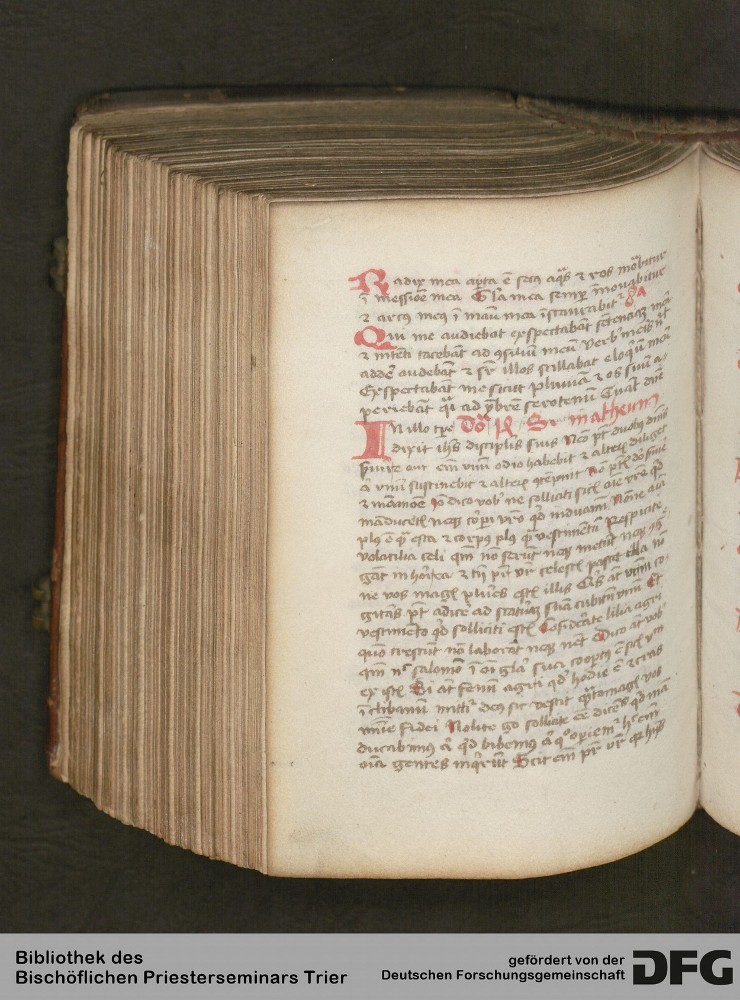 Radix mea apta ē secus aq̄s & ros morabitur
ī messiōe mea Gl'a mea semꝑ īnovabitur
& arcus meus ī manu mea īstaurabitur
Qui me audiebāt expectabāt sentenciam meā
& intēti tacebāt ad ꝯsiliū meū Verb' meis n'l
addē audebāt & sr̄ illos stillabat eloq̄ū meū
Expectabāt me sicut pluuiā & os suū a-
periebāt q̄i ad ymbrē serotinū
In illo tꝑe Dō Sc̄ matheum
dixit ihs disciplis suis Nēo pt̄ duobus dn̄is
seruire aut em̄ vnū odio habebit & alterū diliget
aut vnū sustinebit & alterū ꝯtēpnit Nō ptī dō suire
& māmōe Jō dico vob' ne solliciti sitis aīe vr̄e qd
māducetis neqꝫ corꝑi vr̄o qd induamī Nōne aīa
plus ē q̄ esca & corpus plus q̄ vestimentū Respicite
volatilia celi qm̄ nō serūt neqꝫ metūt neqꝫ ꝯg̃
gāt in horrea & pr̄ vr̄ celestis pascit illa nō
ne vos magis pluris estis illis Q's āt vr̄m co-
gitās pt̄ adicē ad staturā suā cubitū vnū Et
vestimēto qd solliciti estis Cōsid'ate lilia agri
quō crescūt nō laborāt neqꝫ nēt Dico āt vob'
qm̄ nec salomō ī oī gl'a sua cooptus ē sic' vnū
ex istis Si āt fenū agri qd' hodie ē & cras
ī clibanū mittit' deus sic vestit q̄tomagis vos
mīe fidei Nolite go solliciti ēe dicētes qd mā
ducabimus aut qd bibemus aut quo opiem' h' em̄
oīa gentes inq'rūt Scit em̄ pr̄ vr̄ q' hijs
Bibliothek des
Bischöflichen Priesterseminars Trier
gefördert von der
Deutschen Forschungsgemeinschaft
DFG